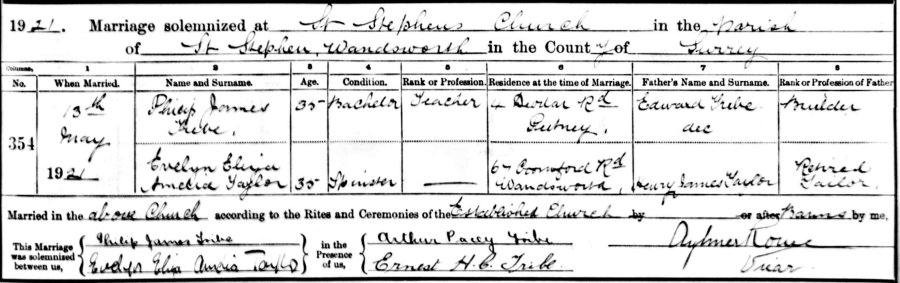 1921. Marriage solemnized at St Stephens Church in the Parish
of St Stephen, Wandsworth in the County of Surrey
Columns, 1 2 3 4 5 6 7 8
No. When Married. Name and Surname. Age. Condition. Rank or Profession. Residence at the time of Marriage. Father's Name and Surname. Rank or Profession of Father
354 13th May 1921 Philip James Tribe, 35 Bachelor Teacher 4 Deodar Rd Putney, Edward Tribe dec Builder
Evelyn Eliza Amelia Taylor 35 Spinster — Rd Wandsworth, Henry James Taylor Retired Tailor,
Married in the above Church according to the Rites and Ceremonies of the Established Church by or after Banns by me,
This Marriage was solemnized between us, Philip James Tribe in the Presence of us, Arthur Pacey Tribe Aylmer Rouse
Evelyn Eliza Amelia Taylor Ernest H.C. Tribe Vicar